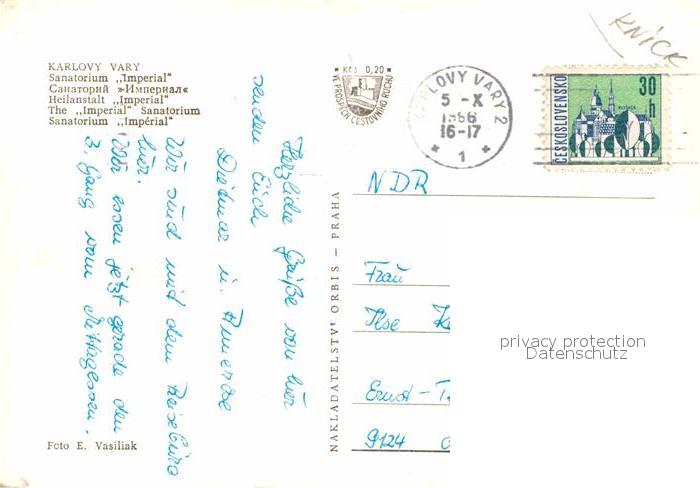 KNICK
KARLOVY VARY
Sanatorium „Imperial“
Санаторий »Империал«
Heilanstalt „Imperial“
The „Imperial“ Sanatorium
Sanatorium „Impérial“
Kčs 0,20
VE PROSPĚCH CESTOVNÍHO RUCHU
KARLOVY VARY 2
5 -X
1966
16-17
* 1 *
ČESKOSLOVENSKO
30 h
Herzliche Grüße von hier
senden Euch
Dietmar u. Annerose
Wir sind mit dem Reisebüro
hier.
Wir essen jetzt gerade den
3. Gang vom Mittagessen.
NAKLADATELSTVÍ ORBIS — PRAHA
NDR
Frau
Ilse
Ernst - T
9124
privacy protection
Datenschutz
Foto E. Vasiliak